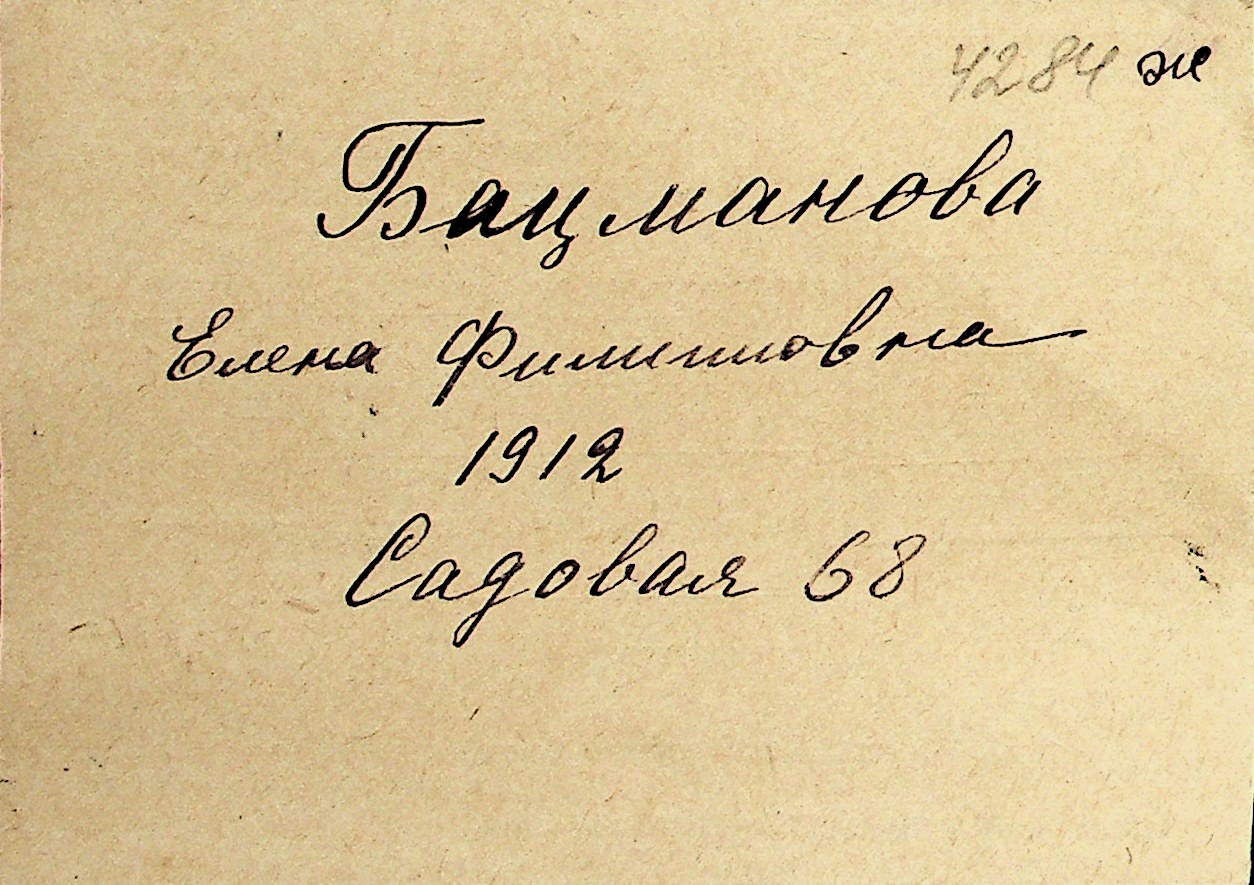 4284 ж
Бацманова
Елена Филипповна
1912
Садовая 68